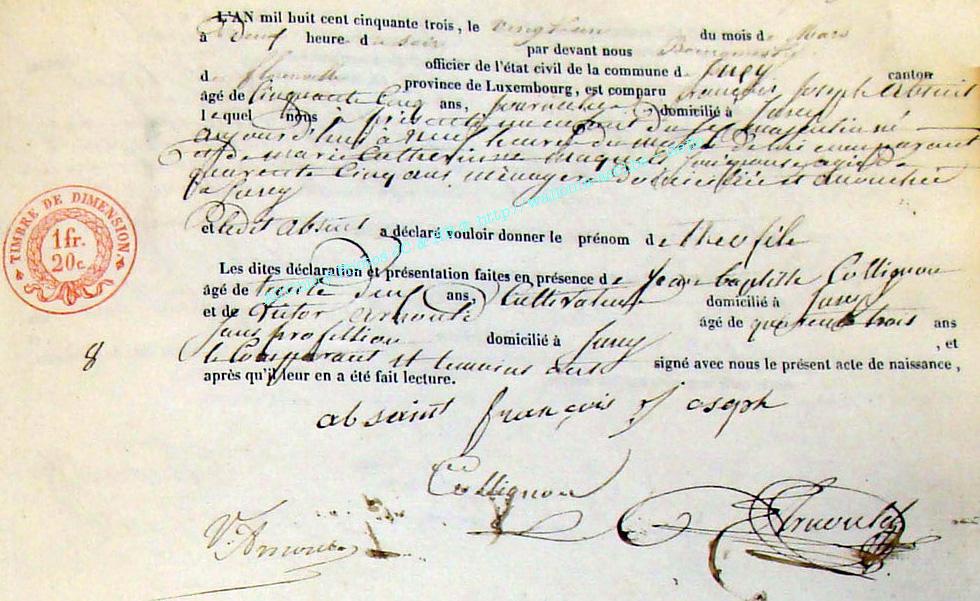 L'AN mil huit cent cinquante trois, le vingt un du mois de Mars
à deux heure du soir par devant nous Bourgmestre
officier de l'état civil de la commune de Jusey canton
de province de Luxembourg, est comparu françois Joseph Absint
âgé de Cinquante Cinq ans, journalier domicilié à Jusey
lequel nous à présenté un enfant du sexe masculin né
aujourd'huis à neuf heures du matin de lui comparant
et de marie Catherinne maquet son épouse agée de
quarente Cinq ans ménagere domiciliée et accouchée
à Jusey
et ledit absint a déclaré vouloir donner le prénom de theofile
Les dites déclaration et présentation faites en présence de Jean baptiste Collignon
âgé de trente deux ans, Cultivateur domicilié à Jusey
et de Victor arnould âgé de quarente trois ans
sans profession domicilié à Jusey , et
le Comparant et temoins ont signé avec nous le présent acte de naissance,
après qu'il leur en a été fait lecture.
TIMBRE DE DIMENSION
1 fr.
20 c.
8
absaint françois Joseph
Collignon
V. Arnould
Arnould